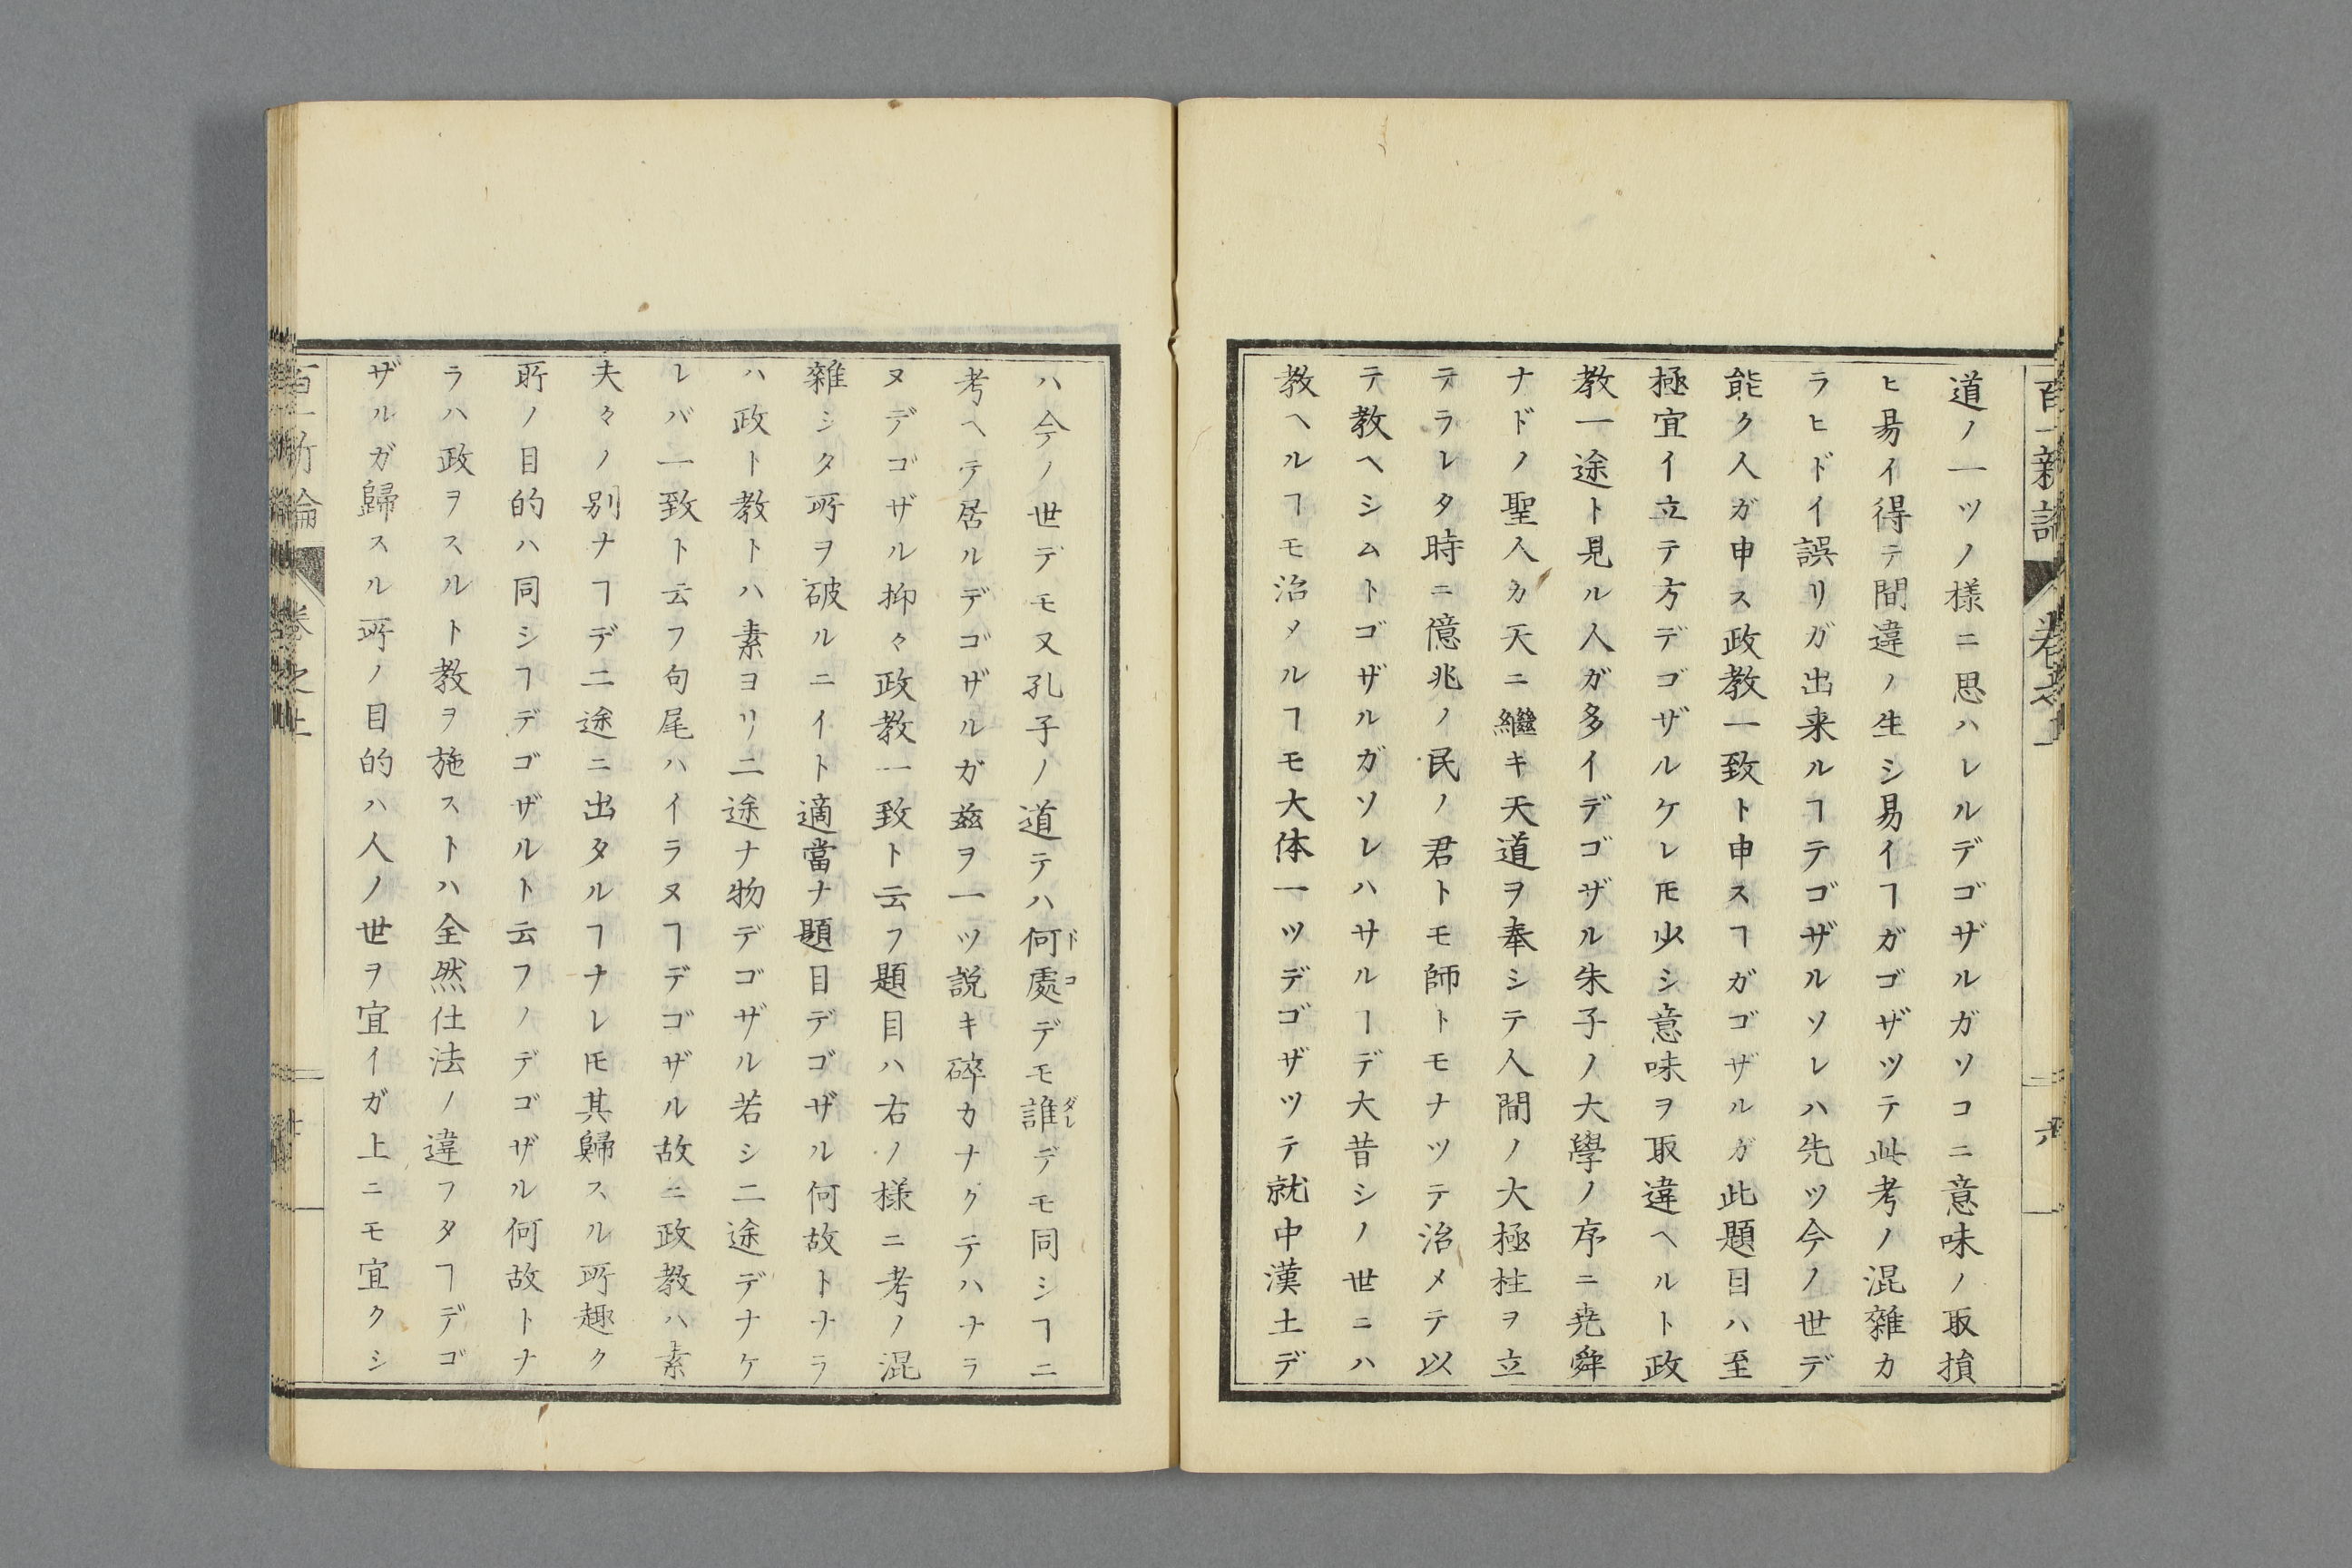 百一新論 卷之上 六
道ノ一ツノ樣ニ思ハレルデゴザルガソコニ意味ノ取損
ヒ易イ得テ間違ノ生シ易イヿガゴザツテ此考ノ混雜カ
ラヒドイ誤リガ出来ルヿテゴザルソレハ先ツ今ノ世デ
能ク人ガ申ス政教一致ト申スヿガゴザルガ此題目ハ至
極宜イ立テ方デゴザルケレ𪜈少シ意味ヲ取違ヘルト政
教一途ト見ル人ガ多イデゴザル朱子ノ大學ノ序ニ堯舜
ナドノ聖人カ天ニ繼キ天道ヲ奉シテ人間ノ大極柱ヲ立
テラレタ時ニ億兆ノ民ノ君トモ師トモナツテ治メテ以
テ教ヘシムトゴザルガソレハサルーデ大昔シノ世ニハ
教ヘルヿモ治メルヿモ大体一ツデゴザツテ就中漢土デ
ハ今ノ世デモ又孔子ノ道テハ何處デモ誰デモ同シヿニ
ドコ
ダレ
考ヘテ居ルデゴザルガ茲ヲ一ツ説キ碎カナクテハナラ
ヌデゴザル抑々政教一致ト云フ題目ハ右ノ様ニ考ノ混
雜シタ所ヲ破ルニイト適當ナ題目デゴザル何故トナラ
ハ政ト教トハ素ヨリ二途ナ物デゴザル若シ二途デナケ
レバ一致ト云フ句尾ハイラヌヿデゴザル故ニ政教ハ素
夫々ノ別ナヿデ二途ニ出タルヿナレ𪜈其歸スル所趣ク
所ノ目的ハ同シヿデゴザルト云フノデゴザル何故トナ
ラハ政ヲスルト教ヲ施ストハ全然仕法ノ違フタヿデゴ
ザルガ歸スル所ノ目的ハ人ノ世ヲ宜イガ上ニモ宜クシ
百一新論 卷之上